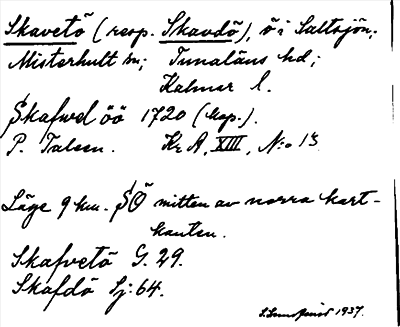 Skavetö (resp. Skavdö), ö i Saltsjön;
Misterhult sn; Tunaläns hd;
Kalmar l.
Skafwel öö 1720 (kop.).
P. Talsen. Kr A, XIII, N:o 13
Läge 9 km. SÖ mitten av norra kart-
kanten.
Skafvetö G. 29.
Skafdö Sj: 64.
1937.